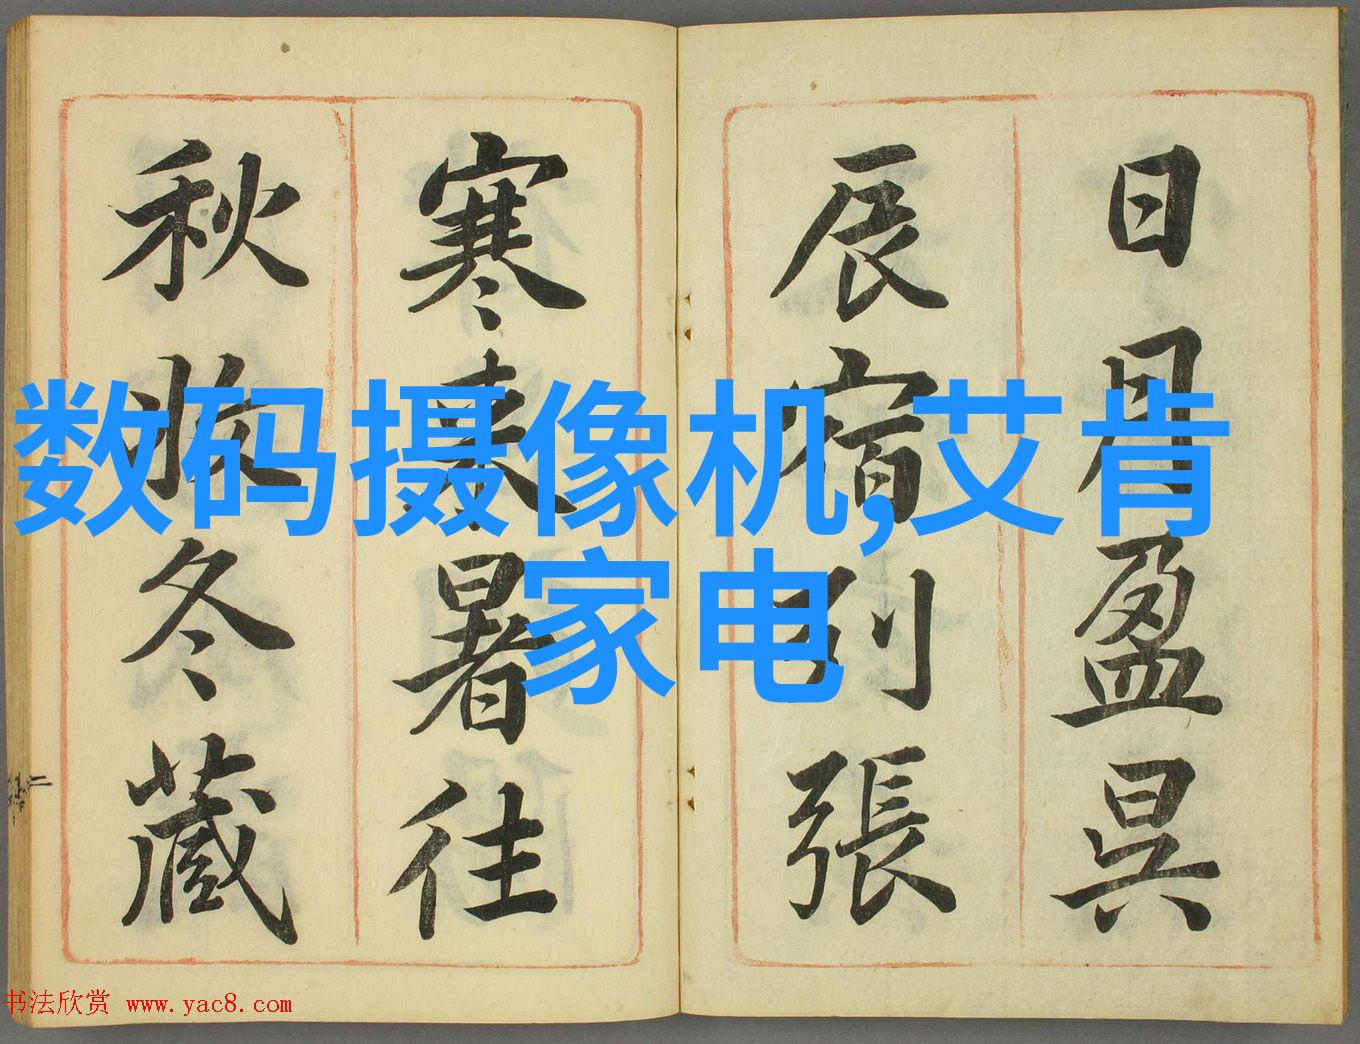 日月盈昃
辰宿列張
寒来暑往
秋收冬藏
数码摄像机,艾肯
家电
书法欣赏 www.yac8.com